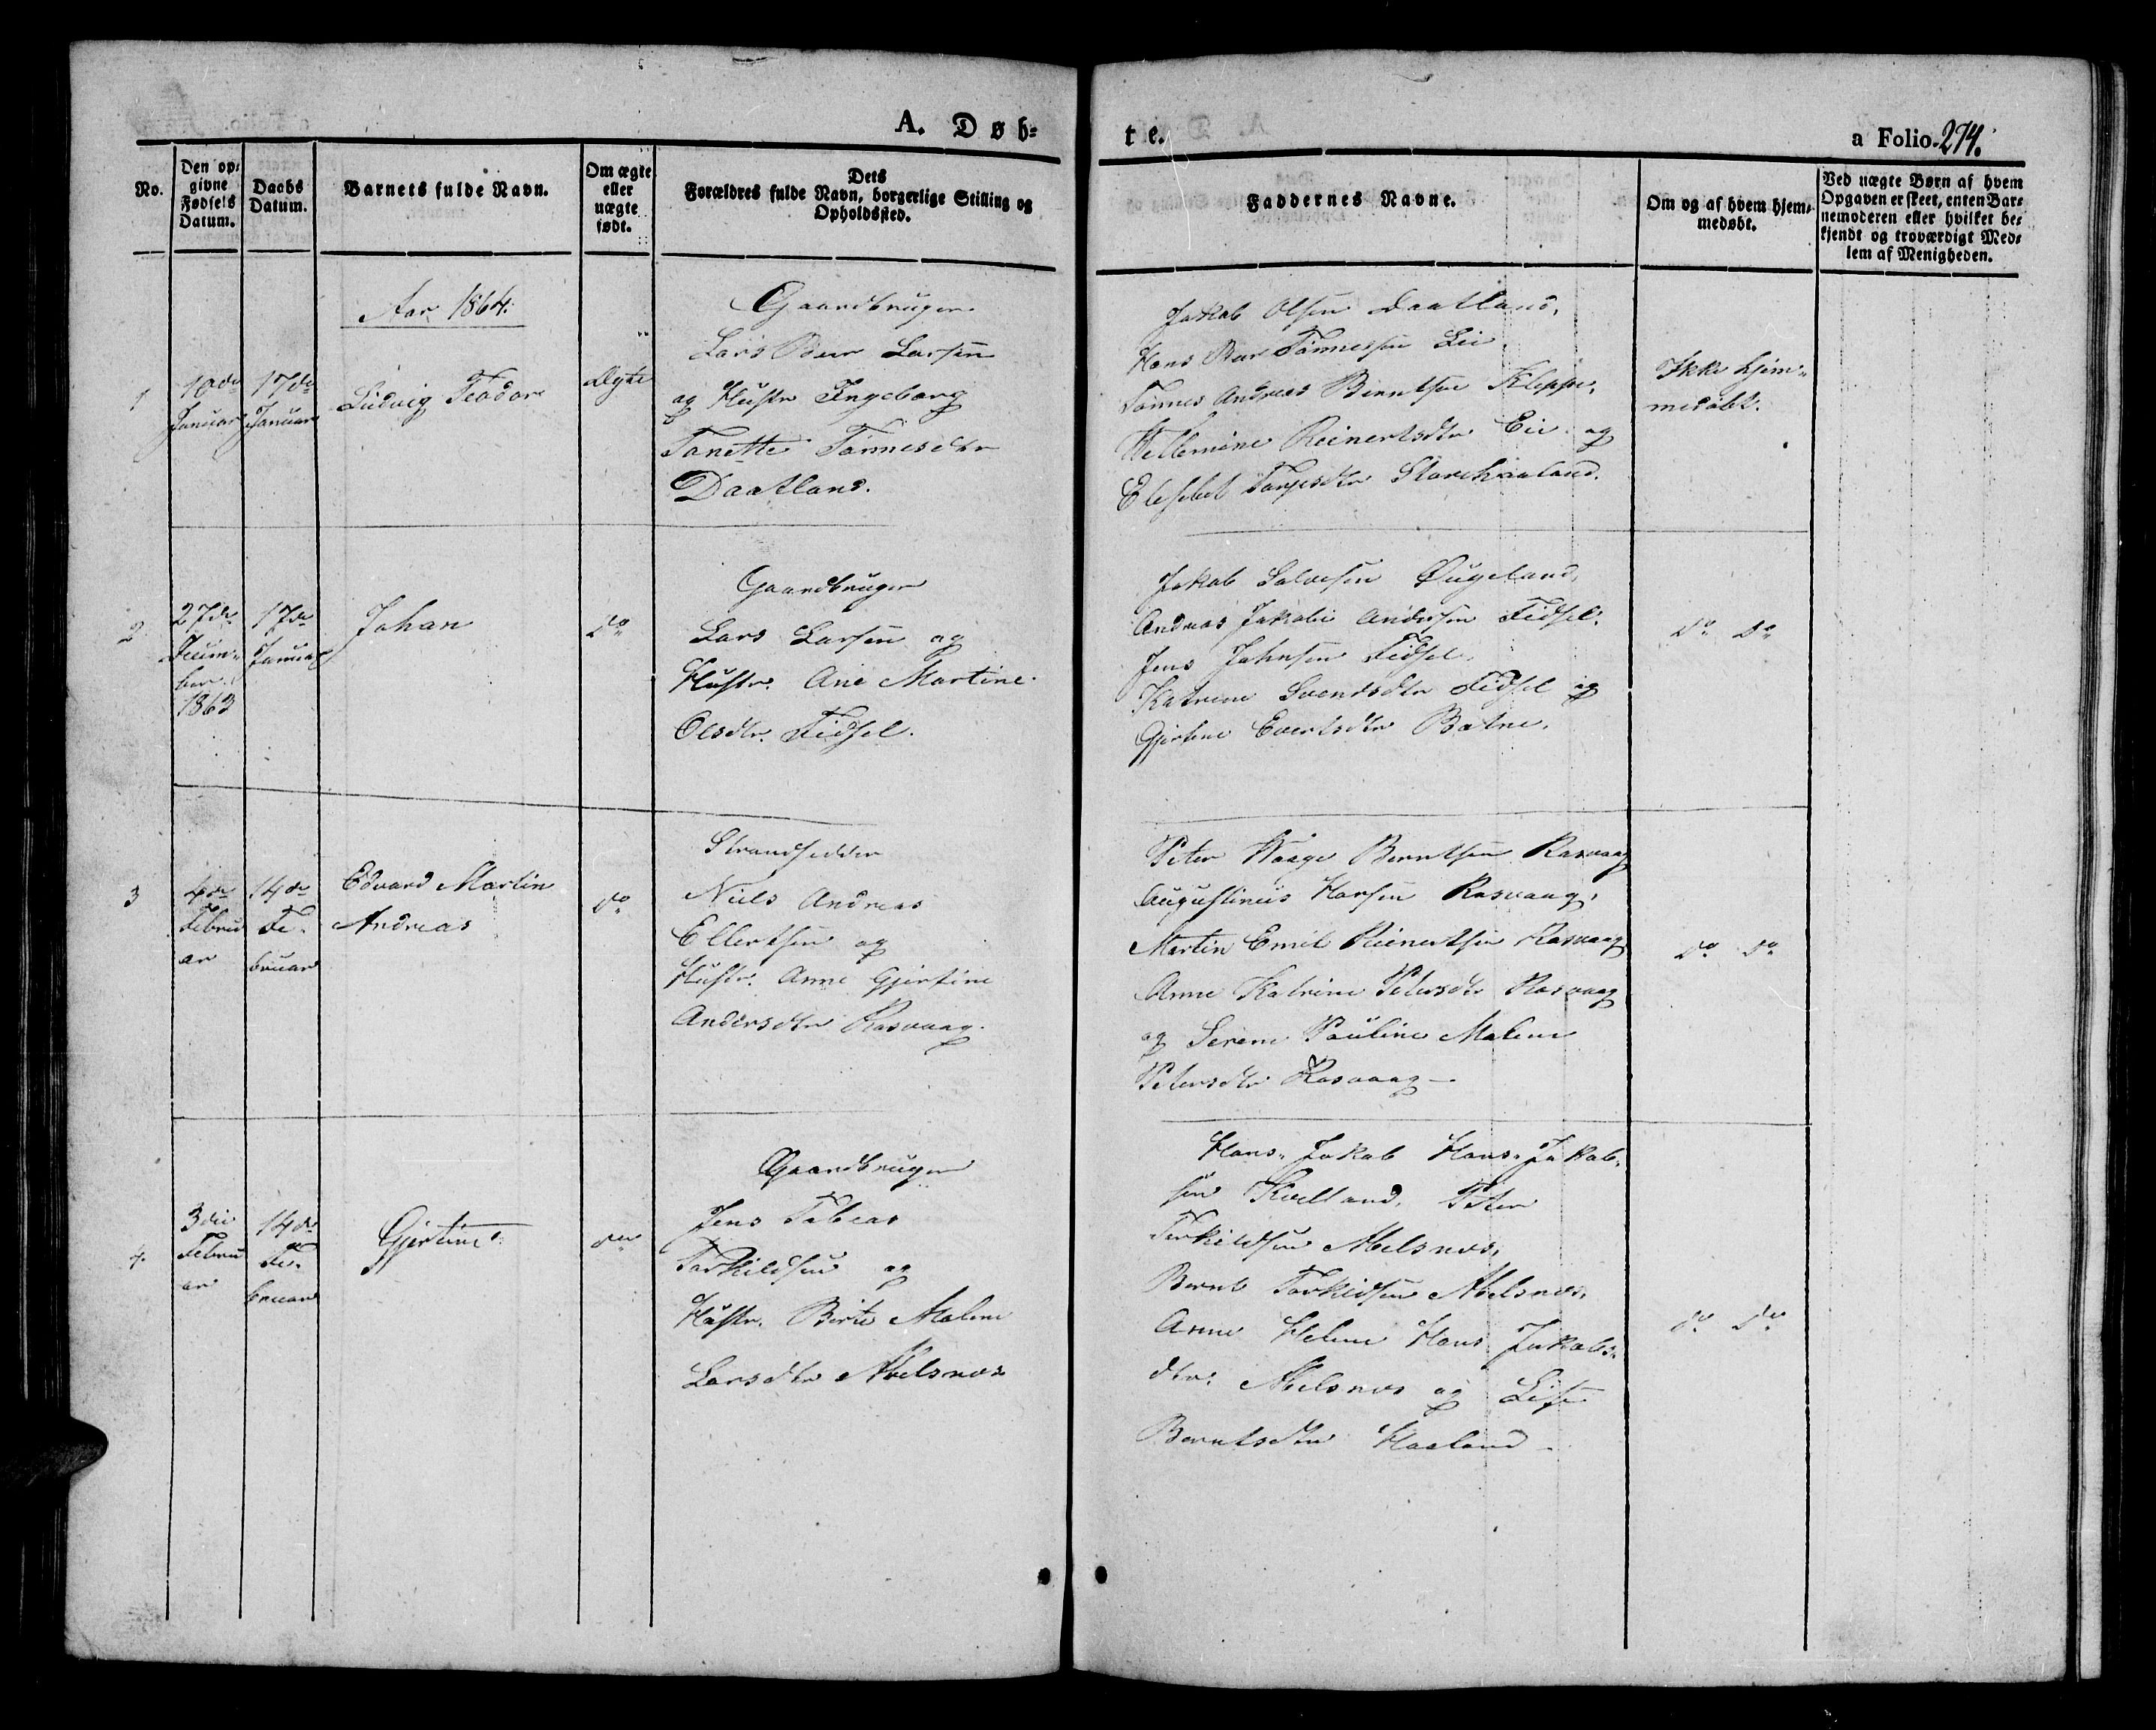 A. Døb-
te.
a Folio. 274.
No.
Den op-
givne
Fødsels
Datum.
Daabs
Datum.
Barnets fulde Navn.
Om ægte
eller
uægte
født.
Dets
Forældres fulde Navn, borgerlige Stilling og
Opholdssted.
Faddernes Navne.
Om og af hvem hjem-
medøbt.
Ved uægte Børn af hvem
Opgaven er skeet, enten Bar-
nemoderen eller hvilket be-
kjendt og troværdigt Med-
lem af Menigheden.
Aar 1864.
1
10de
Januar
17de
Januar
Ludvig Teodor
Ægte
Gaardbruger
Lars Beer Larsen
og Hustr Ingeborg
Tonette Tønnesdtr
Daatland.
Jakob Olsen Daatland,
Hans Beer Tønnesen Eie
Tønnes Andreas Berntsen Kleppe,
Vellemine Reinertsdtr Eie og
Elesebet Tarjesdtr Storehaaland.
Ikke hjem-
medøbt.
2
27de
Decem-
ber
1863
17de
Januar
Johan
do
Gaardbruger
Lars Larsen og
Hustr. Ane Martine
Olsdtr. Fidsel.
Jakob Salvesen Øugeland,
Andreas Jakobi Andersen Fidsel.
Jens Johnsen Fidsel.
Katrine Svendsdtr Fidsel og
Gjertine Evertsdtr Batne.
do do
3
4de
Febru
ar
14de
Fe-
bruar
Edvard Martin
Andreas
do
Strandsidder
Niels Andreas
Ellertsen og
Hustr. Anne Gjertine
Andersdtr Rasvaag.
Peter Waage Berntsen Rasvaag
Augustinius Hansen Rasvaag,
Martin Emil Reinertsen Rasvaag
Anne Katrine Petersdtr Rasvaag
og Serine Pauline Malene
Petersdtr Rasvaag
do do
4.
3die
Febru
ar
14de
Fe-
bruar
Gjertine
do
Gaardbruger
Jens Tobias
Torkildsen og
Hustr. Berte Malene
Larsdtr Abelsnes
Hans Jakob Hans Jakob-
sen Kvelland, Peter
Terkildsen Abelsnes,
Bernt Torkildsen Abelsnes,
Anne Helene Hans Jakobs-
dtr. Abelsnes og Lise
Berntsdtr Haaland
do do